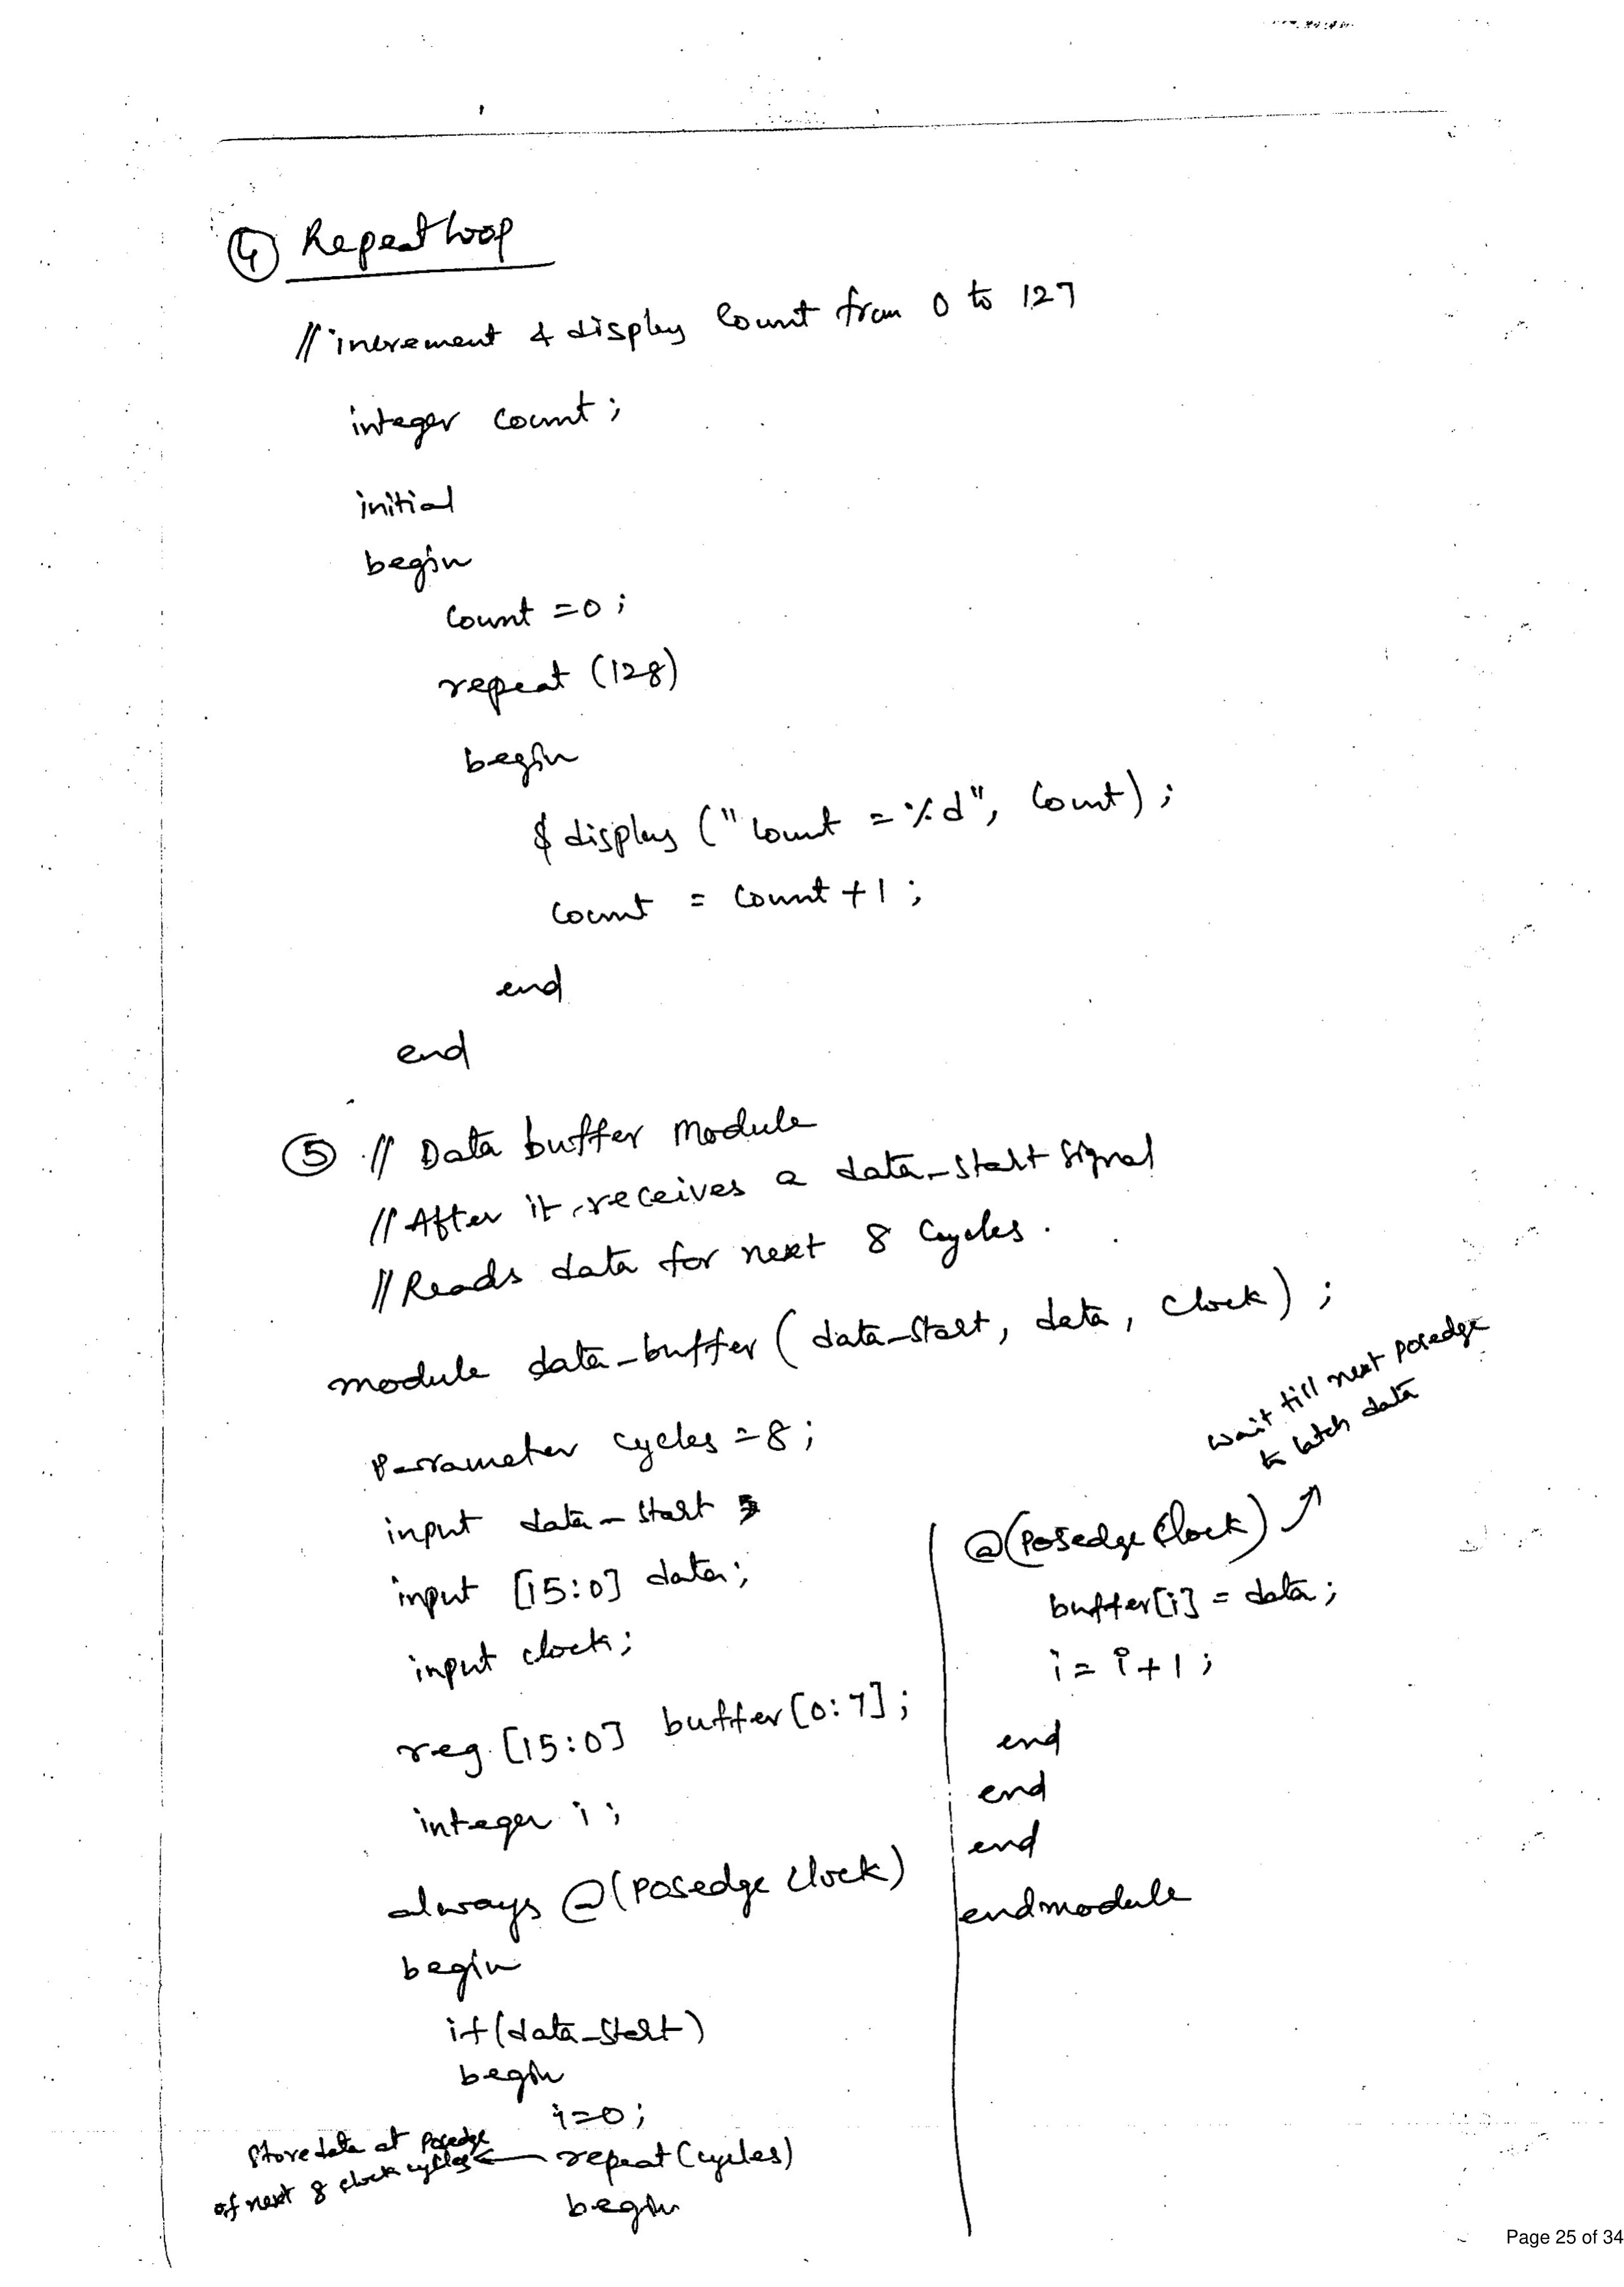 ④ Repeat loop
// increment & display count from 0 to 127
integer count;
initial
begin
count = 0;
repeat (128)
begin
$ display ("count = %d", count);
count = count + 1;
end
end
⑤ // Data buffer module
// After it receives a data_start signal
// Reads data for next 8 cycles.
module data_buffer (data_start, data, clock);
parameter cycles = 8;
input data_start;
input [15:0] data;
input clock;
reg [15:0] buffer [0:7];
integer i;
always @(posedge clock)
begin
if (data_start)
begin
i=0;
store data at posedge
of next 8 clock cycles ← repeat (cycles)
begin
wait till next posedge
to latch data
@(posedge clock) ↗
buffer[i] = data;
i = i+1;
end
end
end
endmodule
Page 25 of 34